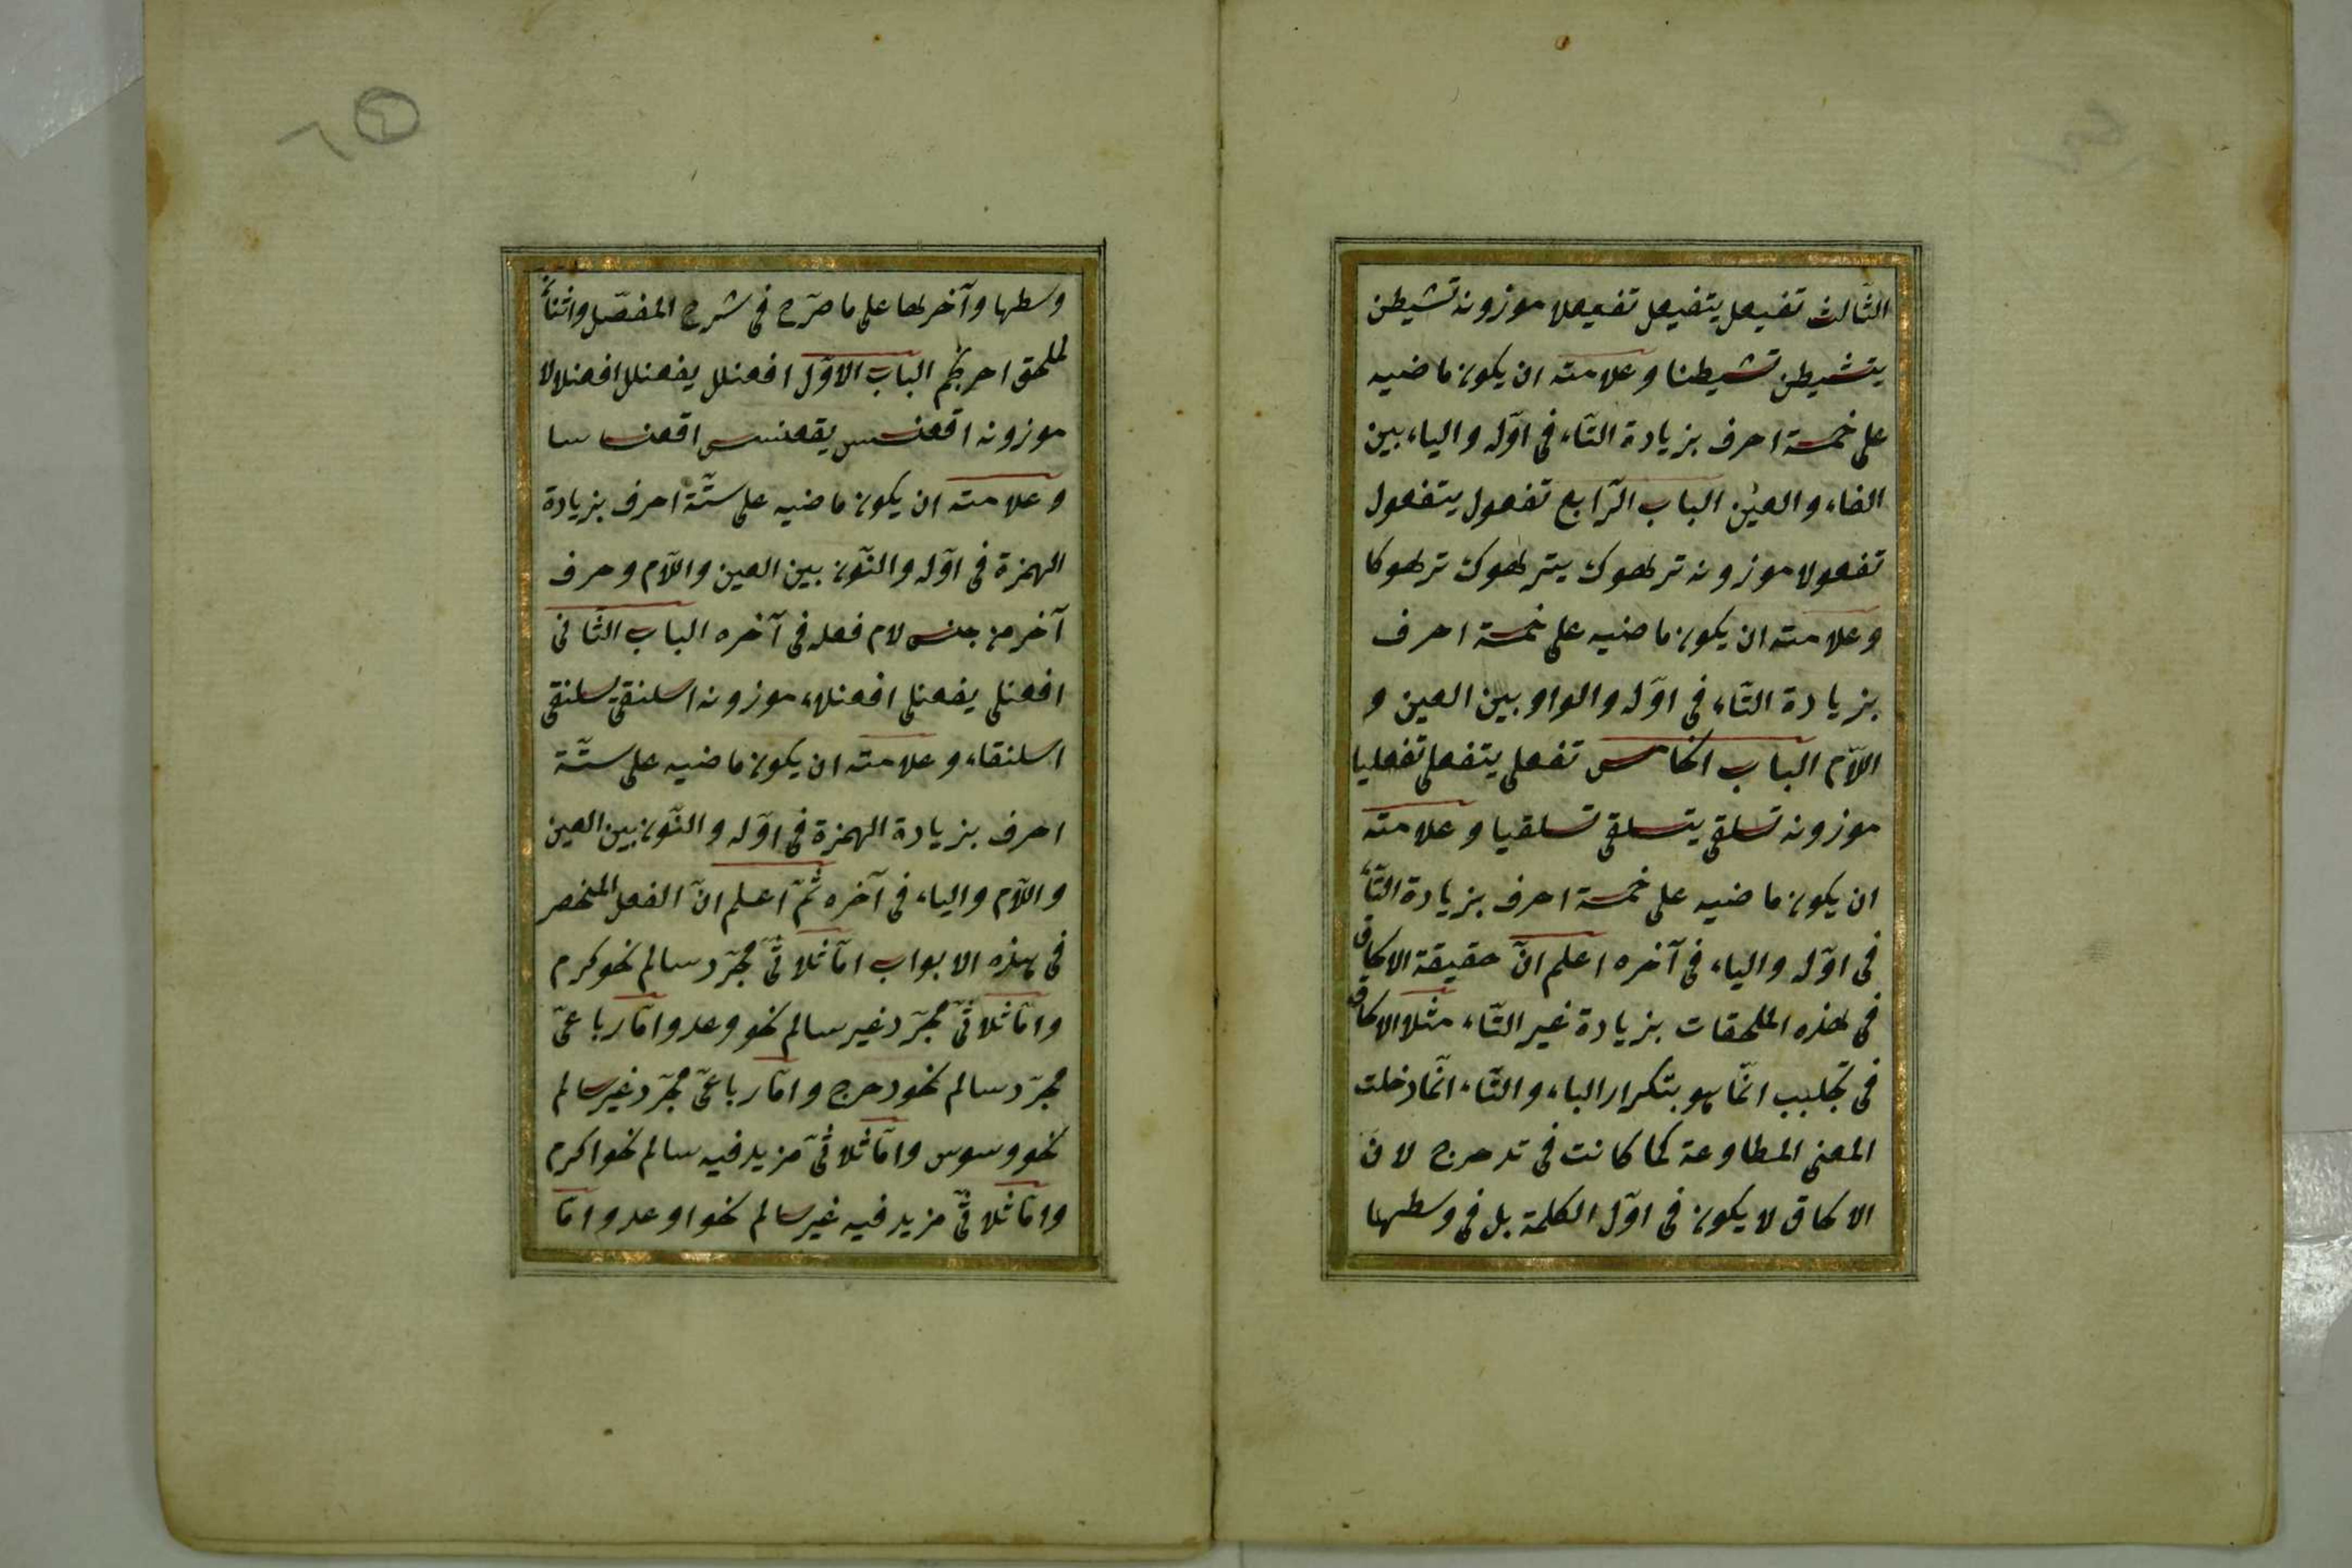 الثّالث تفيعل يتفيعل تفيعلا موزونه تشيطن
يتشيطن تشيطنا وعلامته ان يكون ماضيه
على خمسة احرف بزيادة التّاء فى اوّله والياء بين
الفاء والعين الباب الرّابع تفعول يتفعول
تفعولا موزونه ترهوك يترهوك ترهوكا
وعلامته ان يكون ماضيه على خمسة احرف
بزيادة التّاء فى اوّله والواو بين العين و
اللّام الباب الخامس تفعلى يتفعلى تفعليا
موزونه تسلقى يتسلقى تسلقيا وعلامته
ان يكون ماضيه على خمسة احرف بزيادة التّاء
فى اوّله والياء فى آخره اعلم انّ حقيقة الالحاق
فى هذه الملحقات بزيادة غير التّاء مثلا الالحاق
فى تجلبب انّما هو بتكرار الباء والتّاء انّما دخلت
المعنى المطاوعة كما كانت فى تدحرج لانّ
الالحاق لا يكون فى اوّل الكلمة بل فى وسطها
وسطها وآخرها على ما صرّح فى شرح المفصّل واثنان
لملحق احرنجم الباب الاوّل افعنلل يفعنلل افعنلالا
موزونه اقعنسس يقعنسس اقعنساسا
وعلامته ان يكون ماضيه على ستّة احرف بزيادة
الهمزة فى اوّله والنّون بين العين واللّام وحرف
آخر من جنس لام فعله فى آخره الباب الثّانى
افعنلى يفعنلى افعنلاء موزونه اسلنقى يسلنقى
اسلنقاء وعلامته ان يكون ماضيه على ستّة
احرف بزيادة الهمزة فى اوّله والنّون بين العين
واللّام والياء فى آخره ثمّ اعلم انّ الفعل المنحصر
فى هذه الابواب امّا ثلاثىّ مجرّد سالم نحو كرم
وامّا ثلاثىّ مجرّد غير سالم نحو وعد وامّا رباعىّ
مجرّد سالم نحو دحرج وامّا رباعىّ مجرّد غير سالم
نحو وسوس وامّا ثلاثىّ مزيد فيه سالم نحو اكرم
وامّا ثلاثىّ مزيد فيه غير سالم نحو اوعد وامّا